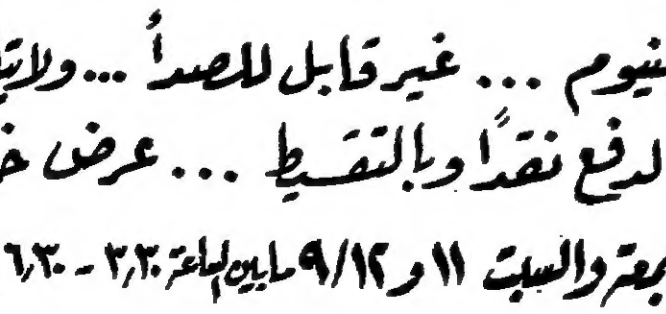 نيوم ... غير قابل للصدأ ... ولا
لدفع نقدًا وبالتقسيط ... عرض
جمعة والسبت ١١ و ٩/١٢ ما بين الساعة ٣,٣٠ - ٦,٣٠